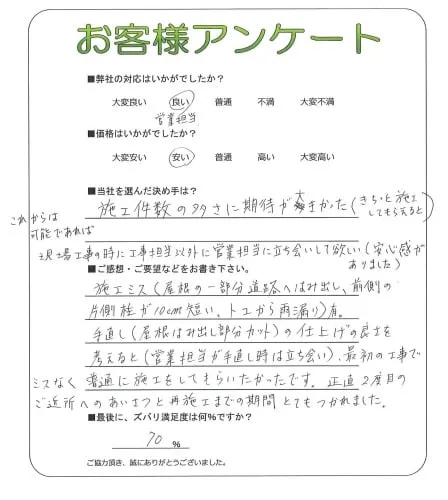 お客様アンケート
■弊社の対応はいかがでしたか?
大変良い 良い 普通 不満 大変不満
営業担当
■価格はいかがでしたか?
大変安い 安い 普通 高い 大変高い
■当社を選んだ決め手は?
施工件数の多さに期待が大きかった(きちっと施工
してもらえると)
これからは
可能であれば
現場工事の時に工事担当以外に営業担当に立ち会いして欲しい(安心感が
ありました)
■ご感想・ご要望などをお書き下さい。
施工ミス(屋根の一部分道路へはみ出し、前側の
片側柱が10cm短い、トユから雨漏り)有。
手直し(屋根はみ出し部分カット)の仕上げの良さを
考えると(営業担当が手直し時は立ち会い)、最初の工事で
ミスなく普通に施工をしてもらいたかったです。正直2度目の
ご近所へのあいさつと再施工までの期間とてもつかれました。
■最後に、ズバリ満足度は何%ですか?
70 %
ご協力頂き、誠にありがとうございました。